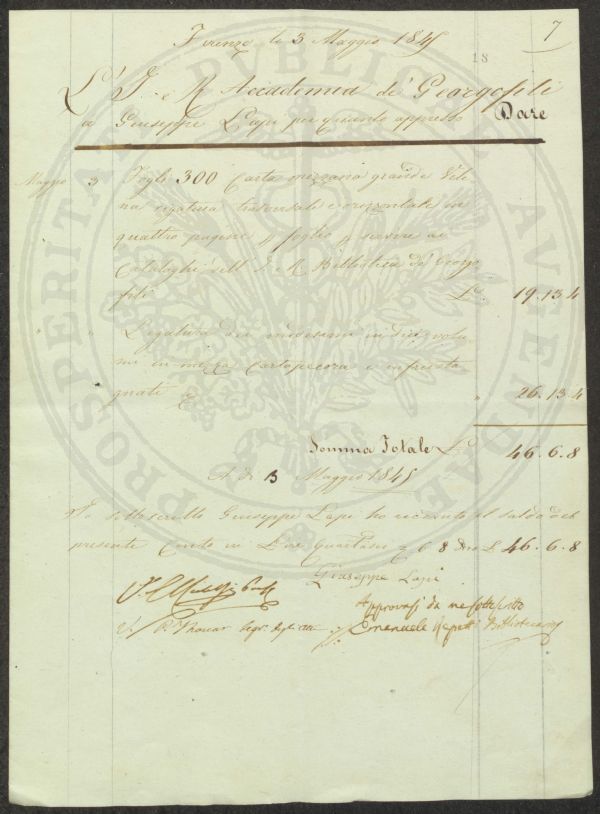 7
Firenze li 3 Maggio 1845
18
L'I. e R. Accademia de' Georgofili
a Giuseppe Lapi per quanto appresso Dare
Maggio 3 Fogli 300 Carta mezzana grande Veli
na rigatura trasversale e orizzontale in
quattro pagine foglio servire ai
Cataloghi dell' I. R. Biblioteca de' Georgo
fili L. 19. 13 4
" " Legatura dei medesimi in dieci volu
mi in mezza cartapecora e
" 26. 13. 4
Somma Totale L. 46. 6. 8
A dì 3 Maggio 1845
Io sottoscritto Giuseppe Lapi ho ricevuto il saldo del
presente Conto in Lire 6 8 L. 46. 6. 8
Giuseppe Lapi
Approvasi da me sottoscritto
Emanuele Repetti Bibliotecario
PROSPERITATI PUBLICAE AUGENDAE